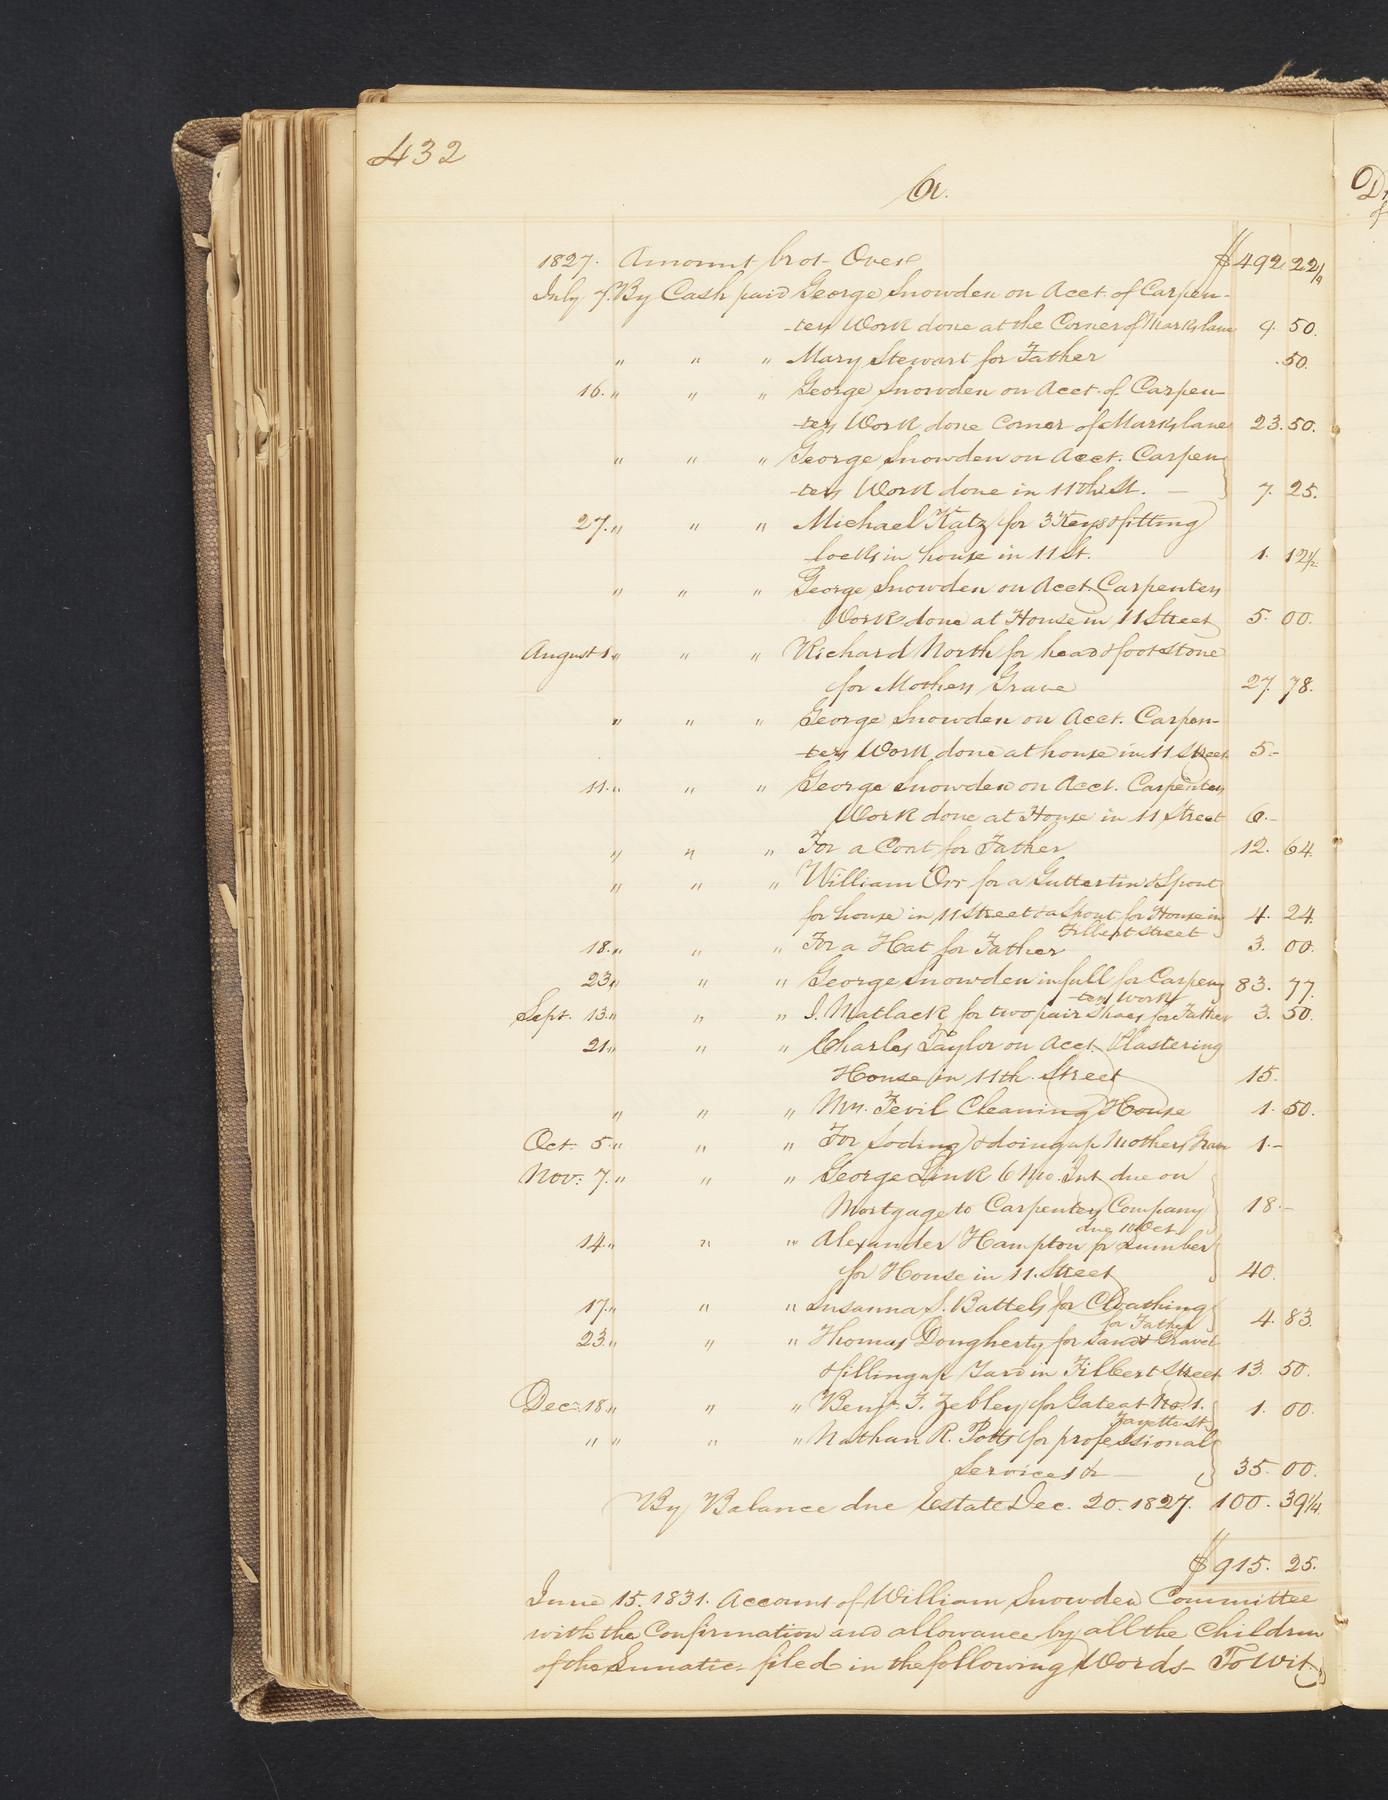 432
Cr.
1827. Amount brot Over $492 22 1/4
July 7. By Cash paid George Snowden on Acct. of Carpen-
-ters Work done at the Corner of Marks lane 9. 50.
" " " Mary Stewart for Father .50.
16. " " " George Snowden on Acct. of Carpen-
-ters Work done Corner of Marks lane 23. 50.
" " " George Snowden on Acct. Carpen
-ters Work done in 11th St. — 7. 25.
27. " " " Michael Katz for 3 Keys & fitting
locks in house in 11 St. 1. 12 1/2
" " " George Snowden on Acct. Carpenters
Work done at House in 11 Street 5. 00.
August 1. " " " Richard North for head & foot stone
for Mothers Grave 27. 78.
" " " George Snowden on Acct. Carpen-
-ters Work done at house in 11 Street 5.-
11. " " " George Snowden on Acct. Carpenters
Work done at House in 11 Street 6.-
" " " For a Coat for Father 12. 64.
" " " William Orr for a Gutter tin & Spout
for house in 11 Street & a Spout for House in 4. 24.
Filbert Street
18. " " " For a Hat for Father 3. 00.
23. " " " George Snowden in full for Carpen 83. 77.
-ters work
Sept. 13. " " " I. Matlack for two pair Shoes for Father 3. 50.
21. " " " Charles Taylor on Acct. Plastering
House in 11th. Street 15.
" " " Mrs. Fevil Cleaning House 1. 50.
Oct. 5. " " " For Soding & doing up Mothers Grave 1.-
Nov: 7. " " " George Link 6 Mo. Int due on
Mortgage to Carpenters Company 18.-
due 10 Oct.
14. " " " Alexander Hampton for Lumber
for House in 11. Street 40.
17. " " " Susanna S. Battels for Cloathing 4. 83.
for Father
23. " " " Thomas Dougherty for Sand & Gravel
& filling up Yard in Filbert Street 13. 50.
Dec: 18. " " " Benjn. F. Zebley for Gate at No. 1. 1. 00.
Fayette St.
" " " " Nathan R. Potts for professional
Services &c — 35. 00.
By Balance due Estate Dec. 20. 1827. 100. 39 1/4.
$915. 25.
June 15. 1831. Account of William Snowden Committee
with the Confirmation and allowance by all the Children
of the Lunatic filed in the following Words - To Wit,